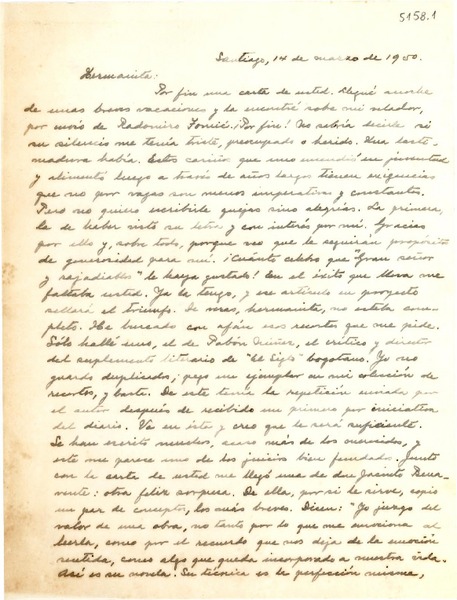 5158.1
Santiago, 14 de marzo de 1950.
Hermanita:
Por fin una carta de usted. Llegué anoche
de unas breves vacaciones y la encontré sobre mi velador,
por envío de Radomiro Tomic. ¡Por fin! No sabría decirle si
su silencio me tenía triste, preocupado o herido. Una
había. Estos cariños que uno encendió en juventud
y alimentó luego a través de años largos tienen exigencias
que no por vagas son menos imperativas y constantes.
Pero no quiero escribirle quejas sino alegrías. La primera,
la de haber visto su letra y con interés por mí. Gracias
por ello y, sobre todo, porque veo que le seguirán propósitos
de generosidad para mí. ¡Cuánto celebro que "Gran señor
y rajadiablos" le haya gustado! En el éxito que lleva me
faltaba usted. Ya la tengo, y ese artículo en proyecto
sellará el triunfo. De veras, hermanita, no estaba com-
pleto. He buscado con afán esos recortes que me pide.
Sólo hallé uno, el de Pabón Núñez, el crítico y director
del suplemento literario de "El Siglo" bogotano. Yo no
guardo duplicados; pego un ejemplar en mi colección de
recortes, y basta. De este tenía la repetición enviada por
el autor después de recibido uno primero por iniciativa
del diario. Va en ésta y creo que le será suficiente.
Se han escrito muchos, acaso más de los merecidos, y
este me parece uno de los juicios bien fundados. Junto
con la carta de usted me llegó una de don Jacinto Bena-
vente: otra feliz sorpresa. De ella, por si le sirve, copio
un par de conceptos, los más breves. Dicen: "Yo juzgo del
valor de una obra, no tanto por lo que me emociona al
leerla, como por el recuerdo que nos deja de la emoción
sentida, como algo que queda incorporado a nuestra vida.
Así es su novela. Su técnica es la perfección misma,